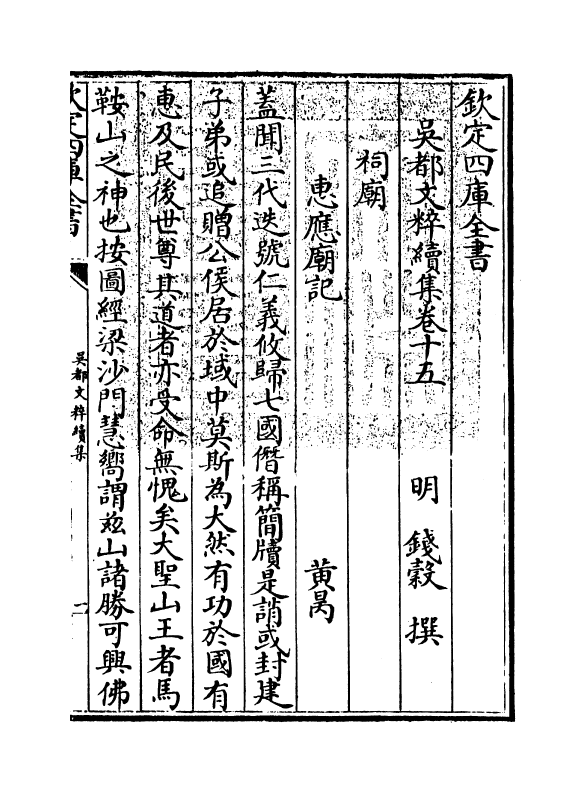 欽定四庫全書
吳都文粹續集卷十五
明 錢穀 撰
祠廟
惠應廟記
黃暠
蓋聞三代迭號仁義攸歸七國僭稱簡牘是誚或封建
子弟或追贈公侯居於域中莫斯為大然有功於國有
恵及民後世尊其道者亦受命無愧矣大聖山王者馬
鞍山之神也按圖經梁沙門慧嚮謂兹山諸勝可興佛
欽定四庫全書
吳都文粹續集